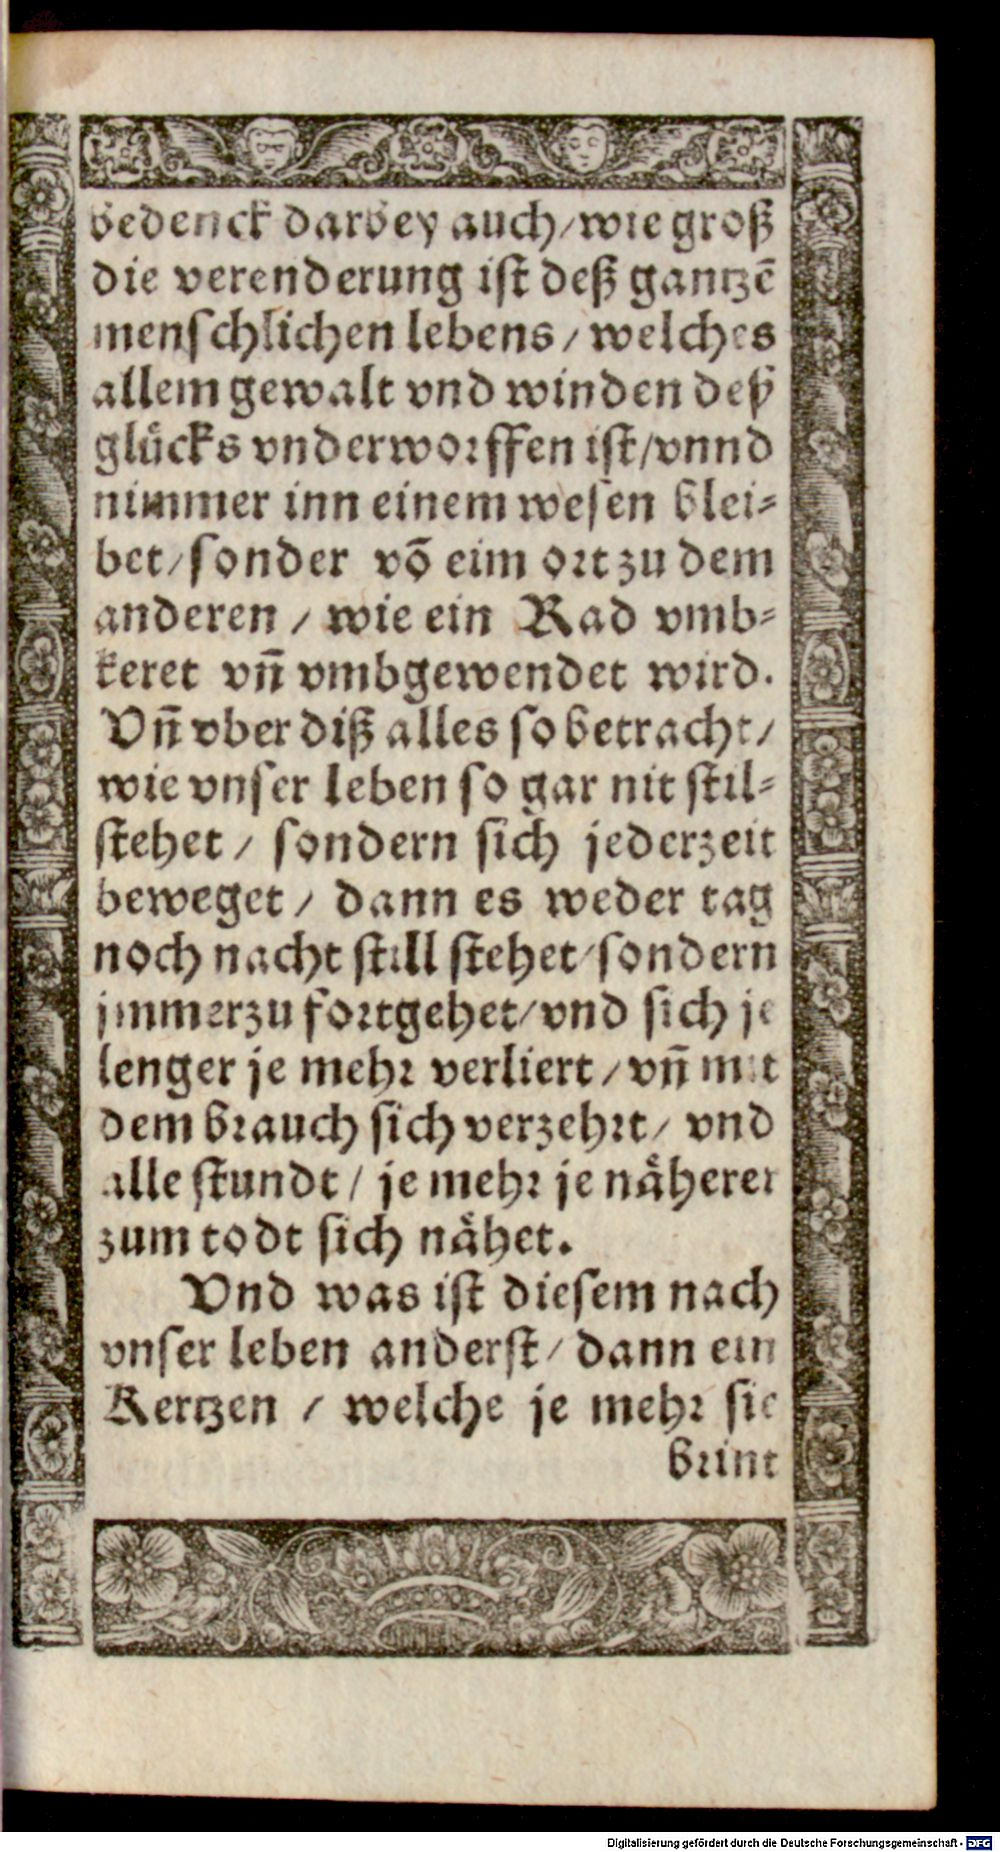 bedenck darbey auch/wie groß
die verenderung ist deß gantzē
menschlichen lebens/welches
allem gewalt vnd winden deß
glücks vnderworffen ist/vnnd
nimmer inn einem wesen blei⸗
bet/sonder vō eim ort zu dem
anderen/wie ein Rad vmb⸗
keret vn̄ vmbgewendet wird.
Vn̄ vber diß alles so betracht/
wie vnser leben so gar nit stil⸗
stehet/sondern sich jederzeit
beweget/dann es weder tag
noch nacht still stehet/sondern
jmmerzu fortgehet/vnd sich je
lenger je mehr verliert/vn̄ mit
dem brauch sich verzehrt/vnd
alle stundt/je mehr je näherer
zum todt sich nähet.
Vnd was ist diesem nach
vnser leben anderst/dann ein
Kertzen/welche je mehr sie
brint
Digitalisierung gefördert durch die Deutsche Forschungsgemeinschaft - DFG